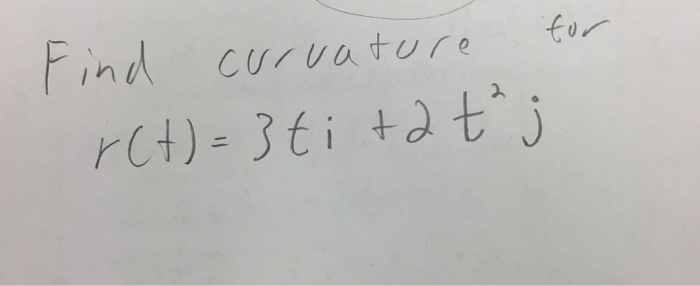 Find curvature for
r(t) = 3ti + 2t²j